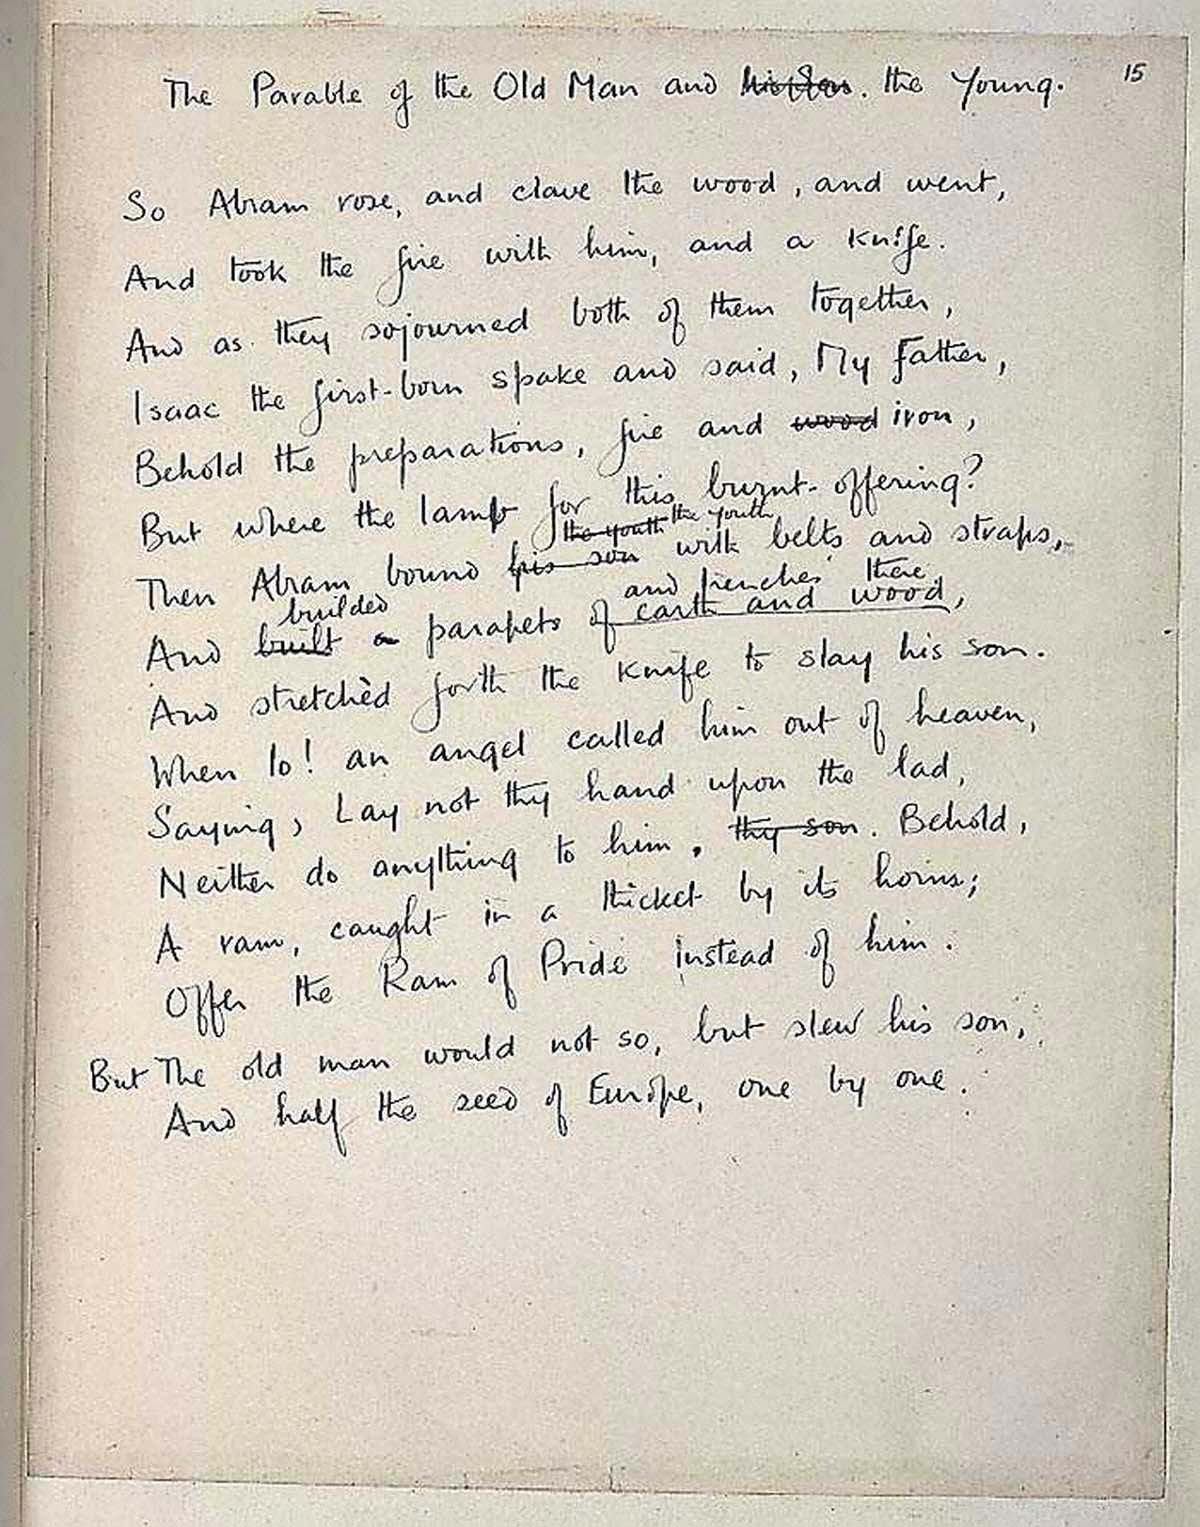 The Parable of the Old Man and his Son. the Young.
15
So Abram rose, and clave the wood, and went,
And took the fire with him, and a knife.
And as they sojourned both of them together,
Isaac the first-born spake and said, My Father,
Behold the preparations, fire and wood iron,
But where the lamb for this burnt-offering?
the youth the youth
Then Abram bound his son with belts and straps,
builded and trenches there
And built a parapets of earth and wood,
And stretchèd forth the knife to slay his son.
When lo! an angel called him out of heaven,
Saying, Lay not thy hand upon the lad,
Neither do anything to him, thy son. Behold,
A ram, caught in a thicket by its horns;
Offer the Ram of Pride instead of him.
But The old man would not so, but slew his son,
And half the seed of Europe, one by one.